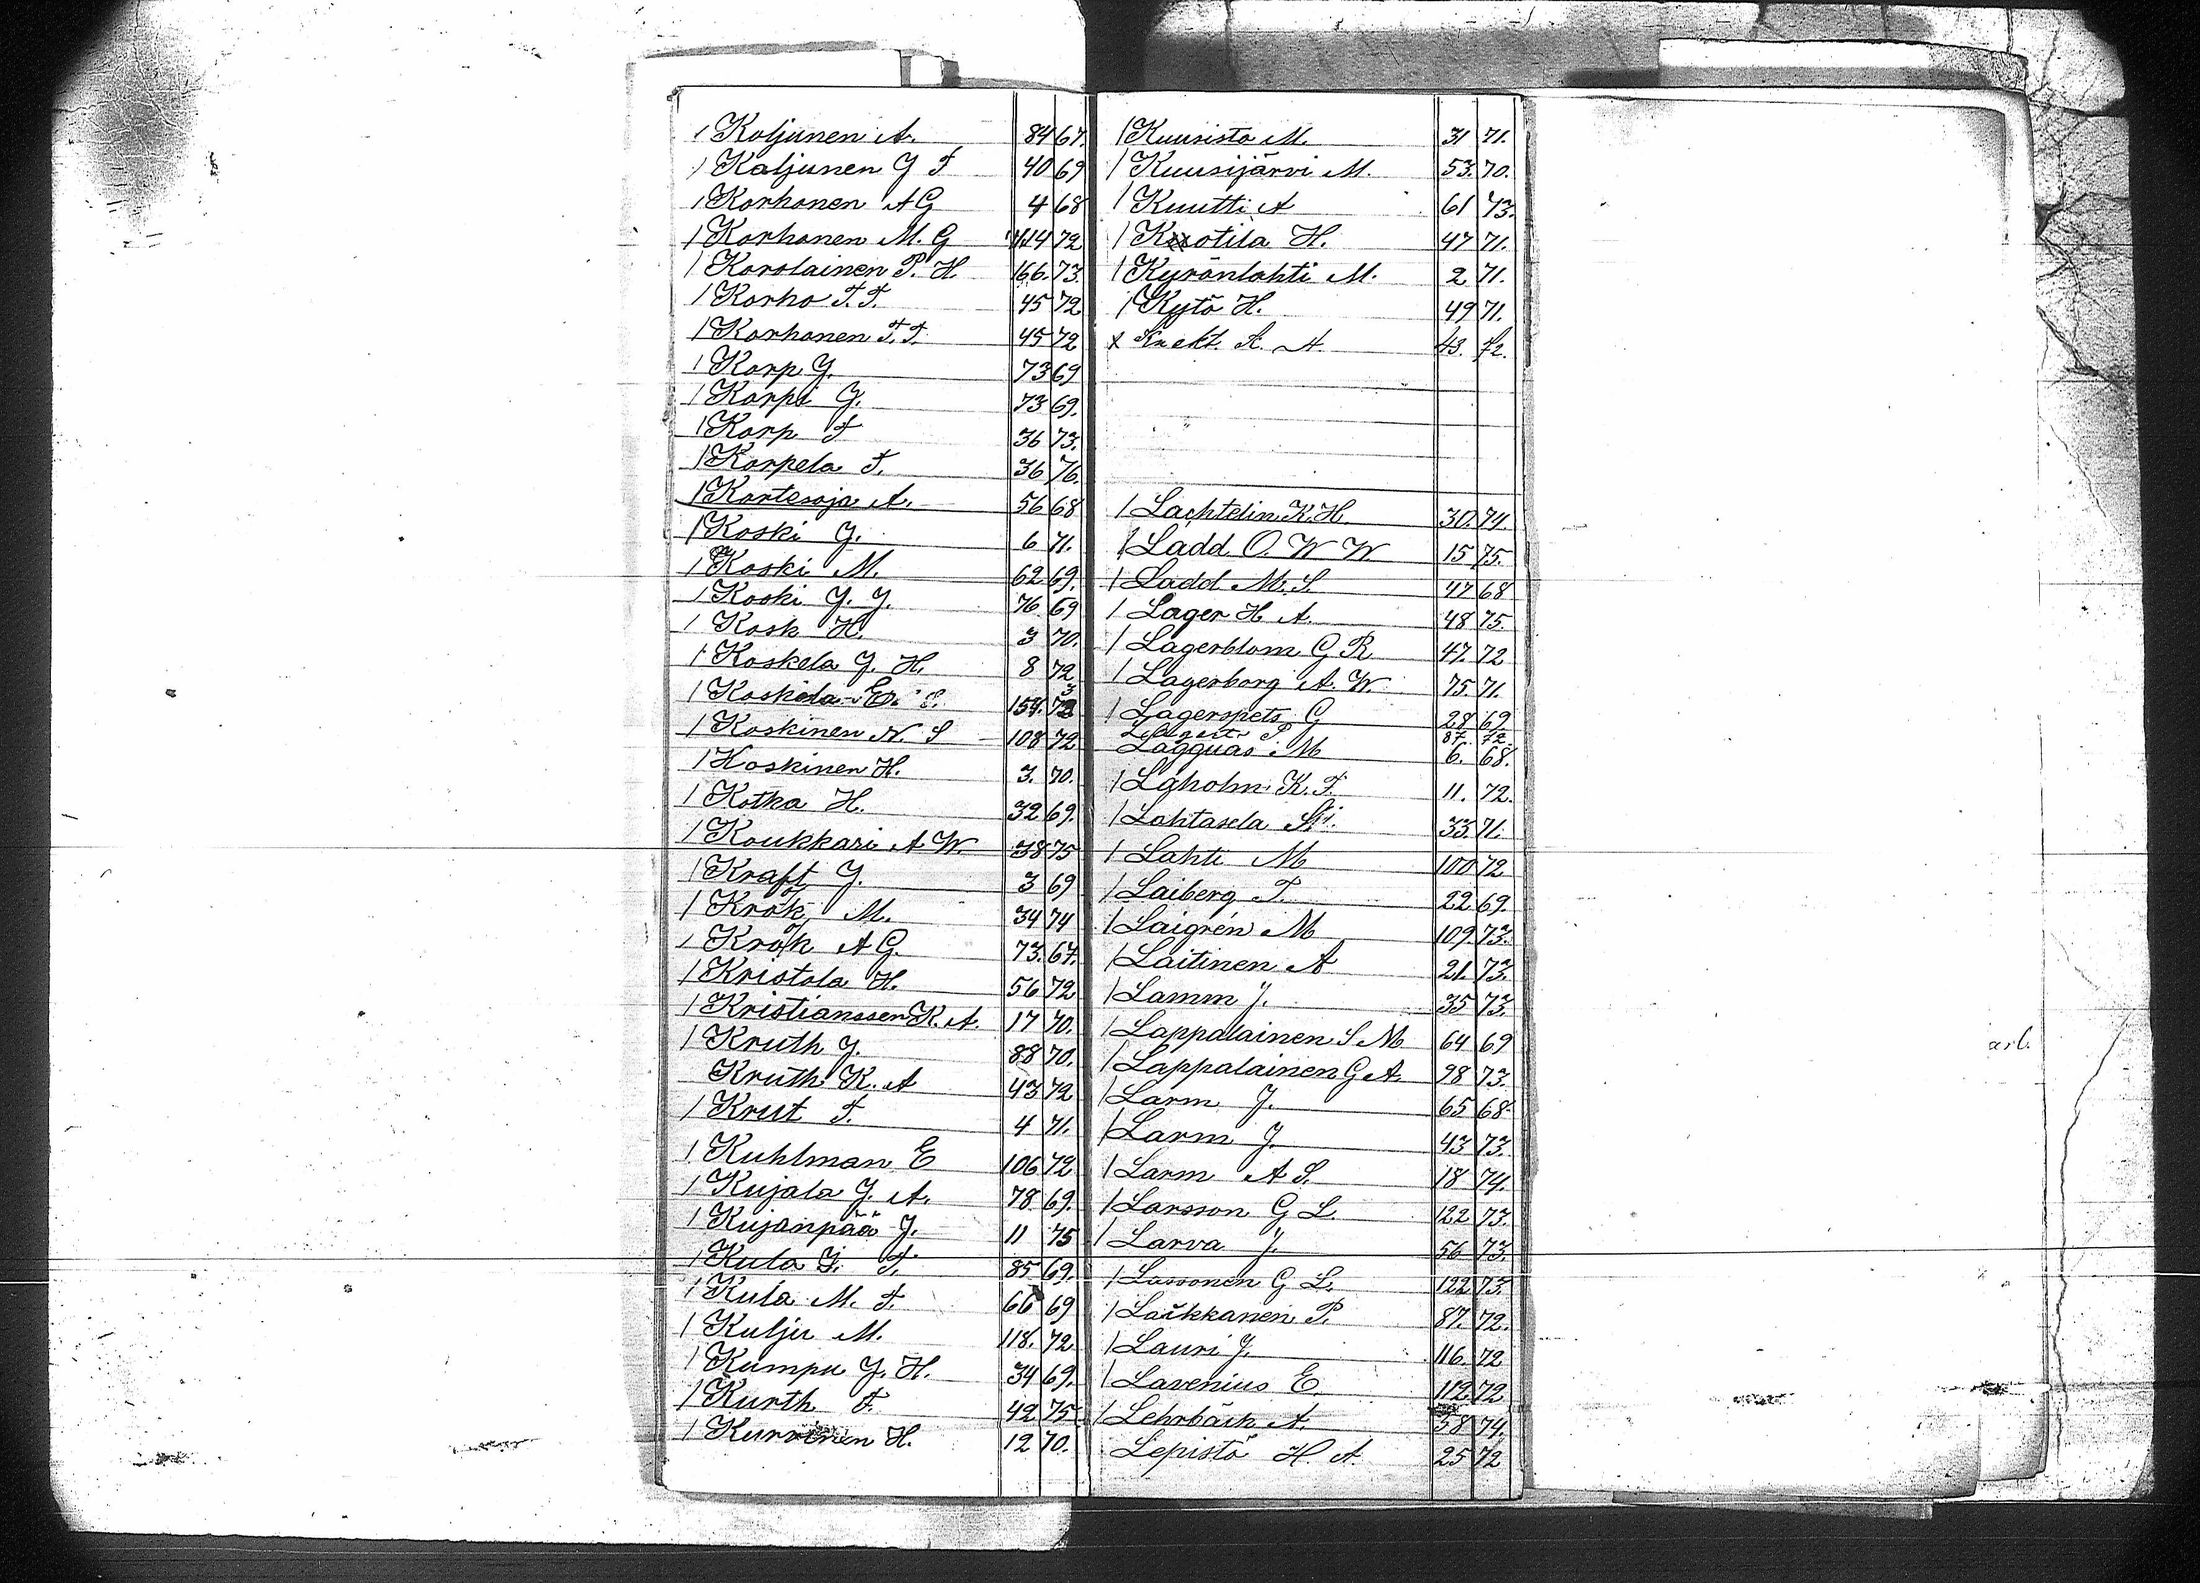 / Koljunen A. 84 67.
/ Koljunen J F 40 69
/ Korhonen A G 4 68
/ Korhonen M. G 114 72
/ Korolainen P. H 166. 73.
/ Korho F. F. 45 72
/ Korhonen F. F. 45 72
/ Korp J. 73 69
/ Korpi J. 73 69.
/ Korp F 36 73.
/ Korpela F. 36 76.
/ Kortesoja A. 56 68
/ Koski J. 6 71.
/ Koski M. 62 69.
/ Koski J. J. 76 69
/ Kosk H. 3 70.
/ Koskela J. H. 8 72
/ Koskela E. 73
/ Koskinen N. S 108 72
/ Koskinen H. 3. 70.
/ Kotka H. 32 69.
/ Koukkari A. W. 38 75
/ Kraft J. 3 69
/ Krok M. 34 74
/ Krok A G. 73. 67.
/ Kristola H. 56 72
/ Kristianssen K. A. 17 70.
/ Kruth J. 88 70.
Kruth K. A 43 72
/ Krut F. 4 71.
/ Kuhlman E 106 72
/ Kujala J. A. 78 69.
/ Kujanpää J. 11 75
/ Kula J. F. 85 69.
/ Kula M. F. 66 69
/ Kulju M. 118. 72
/ Kumpu J. H. 34 69.
/ Kurth F. 42 75
/ Kurvinen H. 12 70.
/ Kuusisto M. 31 71.
/ Kuusijärvi M. 53. 70.
/ Kuutti A 61 73.
/ Kxxotila H. 47 71.
/ Kyrönlahti M. 2 71.
/ Kytö H. 49 71.
x Knekt. K. A. 43. 72.
/ Lachtelin K. H. 30. 74.
/ Ladd O. W W 15 75.
/ Ladd M. S. 47 68
/ Lager H A. 48 75.
/ Lagerblom G R 47. 72
/ Lagerborg A. W. 75. 71.
/ Lagerspets G 28 69
P 87. 72
Lagguas M 6. 68.
/ Laholm K. F. 11. 72.
/ Lahtasela 33. 71.
/ Lahti M 100 72
/ Laiberg F. 22 69.
/ Laigrén M 109. 73.
/ Laitinen A 21. 73.
/ Lamm J. 35 73.
/ Lappalainen S M 64 69
/ Lappalainen G A. 98 73.
/ Larm J. 65 68.
/ Larm J. 43 73.
/ Larm A S. 18 74.
/ Larsson G L. 122 73.
/ Larva J. 56 73.
/ Lassonen G L. 122 73.
/ Laukkanen P. 87. 72.
/ Lauri J. 116. 72
/ Lavenius E. 112. 72
/ Lehrbäck A. 58 74.
Lepistö H. A. 25 72